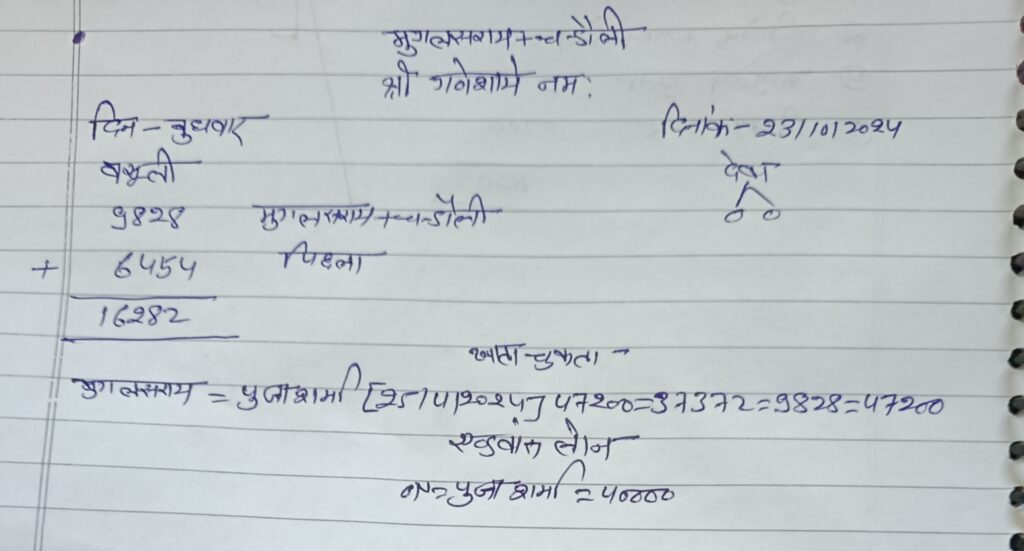 मुगलसराय + चन्डौली
श्री गणेशाये नम:
दिन - बुधवार दिनांक - 23/10/2024
वसूली देना
9828 मुगलसराय + चन्डौली 00
+ 6454 पिछला
16282
खाता चुकता -
मुगलसराय = पुजा शर्मा [25/4/2024] 47200=37372=9828=47200
एडवांस लोन
पुजा शर्मा = 40000